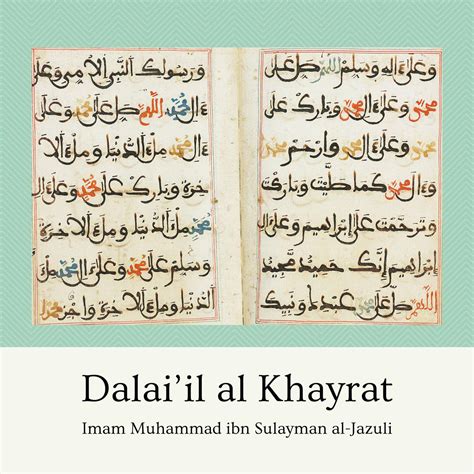 وعلى ءاله وسلم اللهم صل على
محمد وعلى ءال محمد وبارك على
محمد وعلى ءال محمد وارحم
محمد وءال محمد كما صليت وبا
وترحمت على إبراهيم وعلى
إبراهيم إنك حميد مجيد
اللهم صل على محمد عبدك ونبيك
ورسولك النبي الامي وعلى
ءال محمد اللهم صل على محمد وعلى
ءال محمد ملء الدنيا وملء الا
خرة وبارك على محمد وعلى
ءال محمد ملء الدنيا وملء الاخرة
وسلم على محمد وعلى ءال محمد
ملء الدنيا وملء الاخرة واجز
Dalai'il al Khayrat
Imam Muhammad ibn Sulayman al-Jazuli